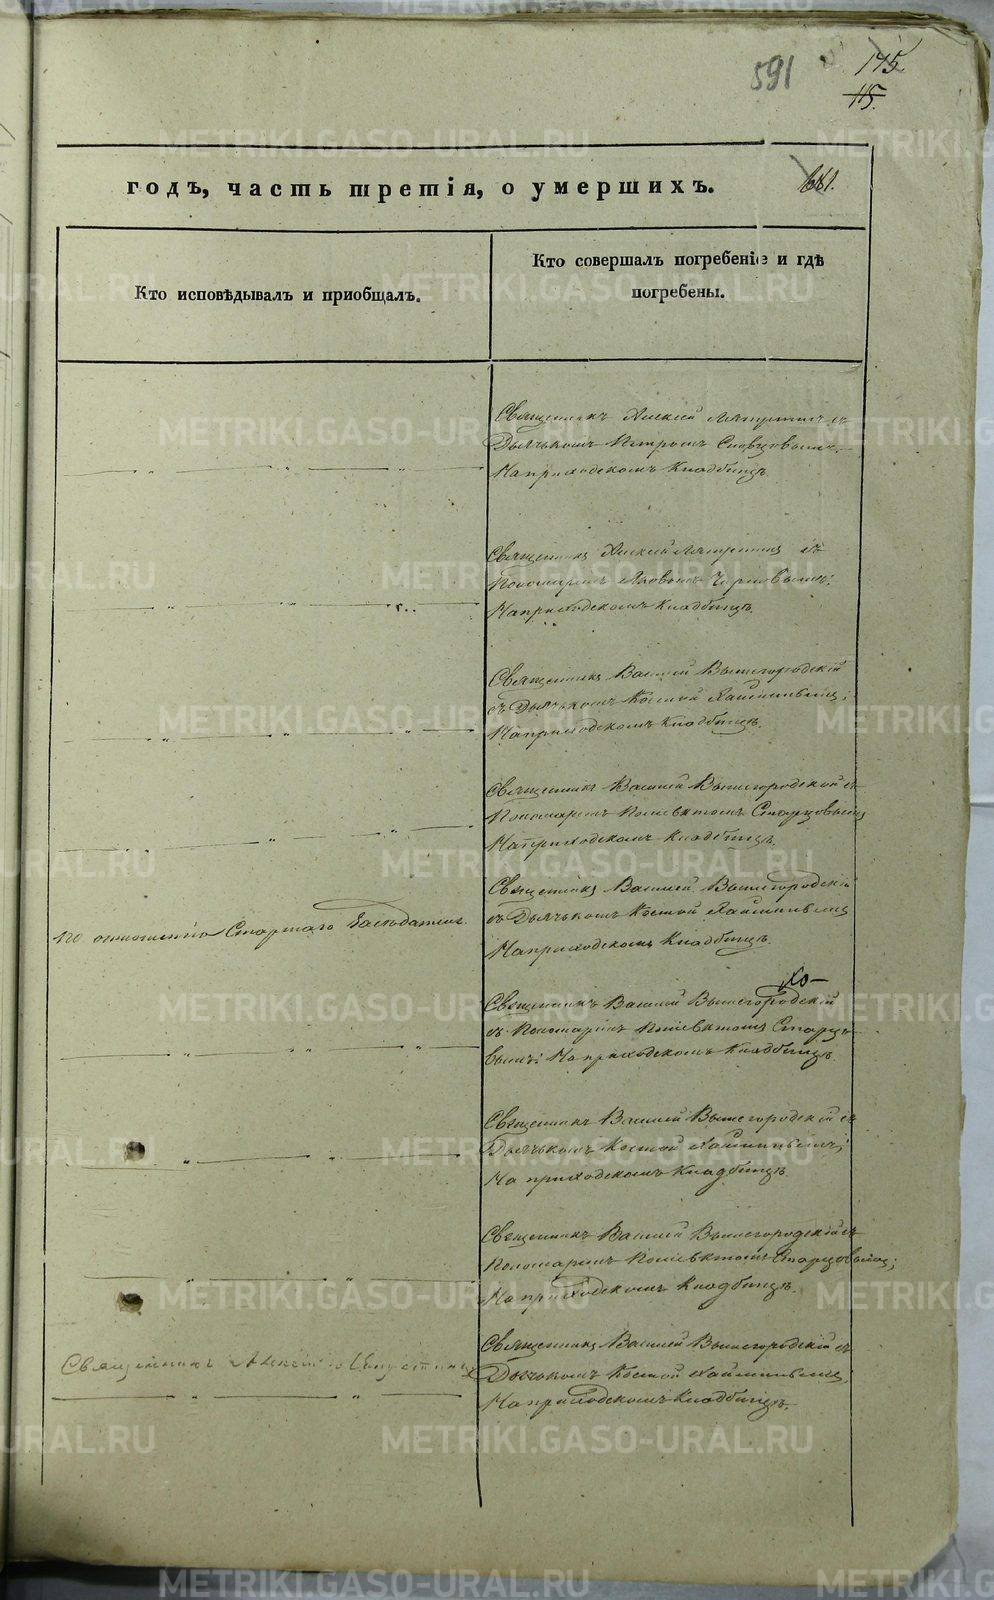 591
175
115.
годъ, часть третія, о умершихъ.
Кто исповѣдывалъ и приобщалъ.
Кто совершалъ погребеніе и гдѣ
погребены.
Священникъ Алексей съ
Дьячькомъ Петромъ Словцовымъ.
На приходскомъ кладбищѣ.
Священникъ Алексей съ
Пономаремъ Яковомъ
На приходскомъ кладбищѣ.
Священникъ Василій Вышегородскій
съ Дьячькомъ Космой
На приходскомъ кладбищѣ.
Священникъ Василей Вышегородской съ
Пономаремъ Полиевктомъ Старцовымъ
На приходскомъ кладбищѣ.
По отношенію Старшаго Заседателя.
Священникъ Василей Вышегородскій
съ Дьячькомъ Космой
На приходскомъ кладбищѣ.
Священникъ Василій Вышегородскій
съ Пономаремъ Полиевктомъ Старцо-
вымъ; На приходскомъ кладбищѣ.
Священникъ Василій Вышегородскій съ
Дьячькомъ Космой
На приходскомъ кладбищѣ.
Священникъ Василій Вышегородскій съ
Пономаремъ Полиевктомъ Старцовымъ;
На приходскомъ кладбищѣ.
Священникъ
Священникъ Василій Вышегородскій съ
Дьячькомъ Космой
На приходскомъ кладбищѣ.
METRIKI.GASO-URAL.RU